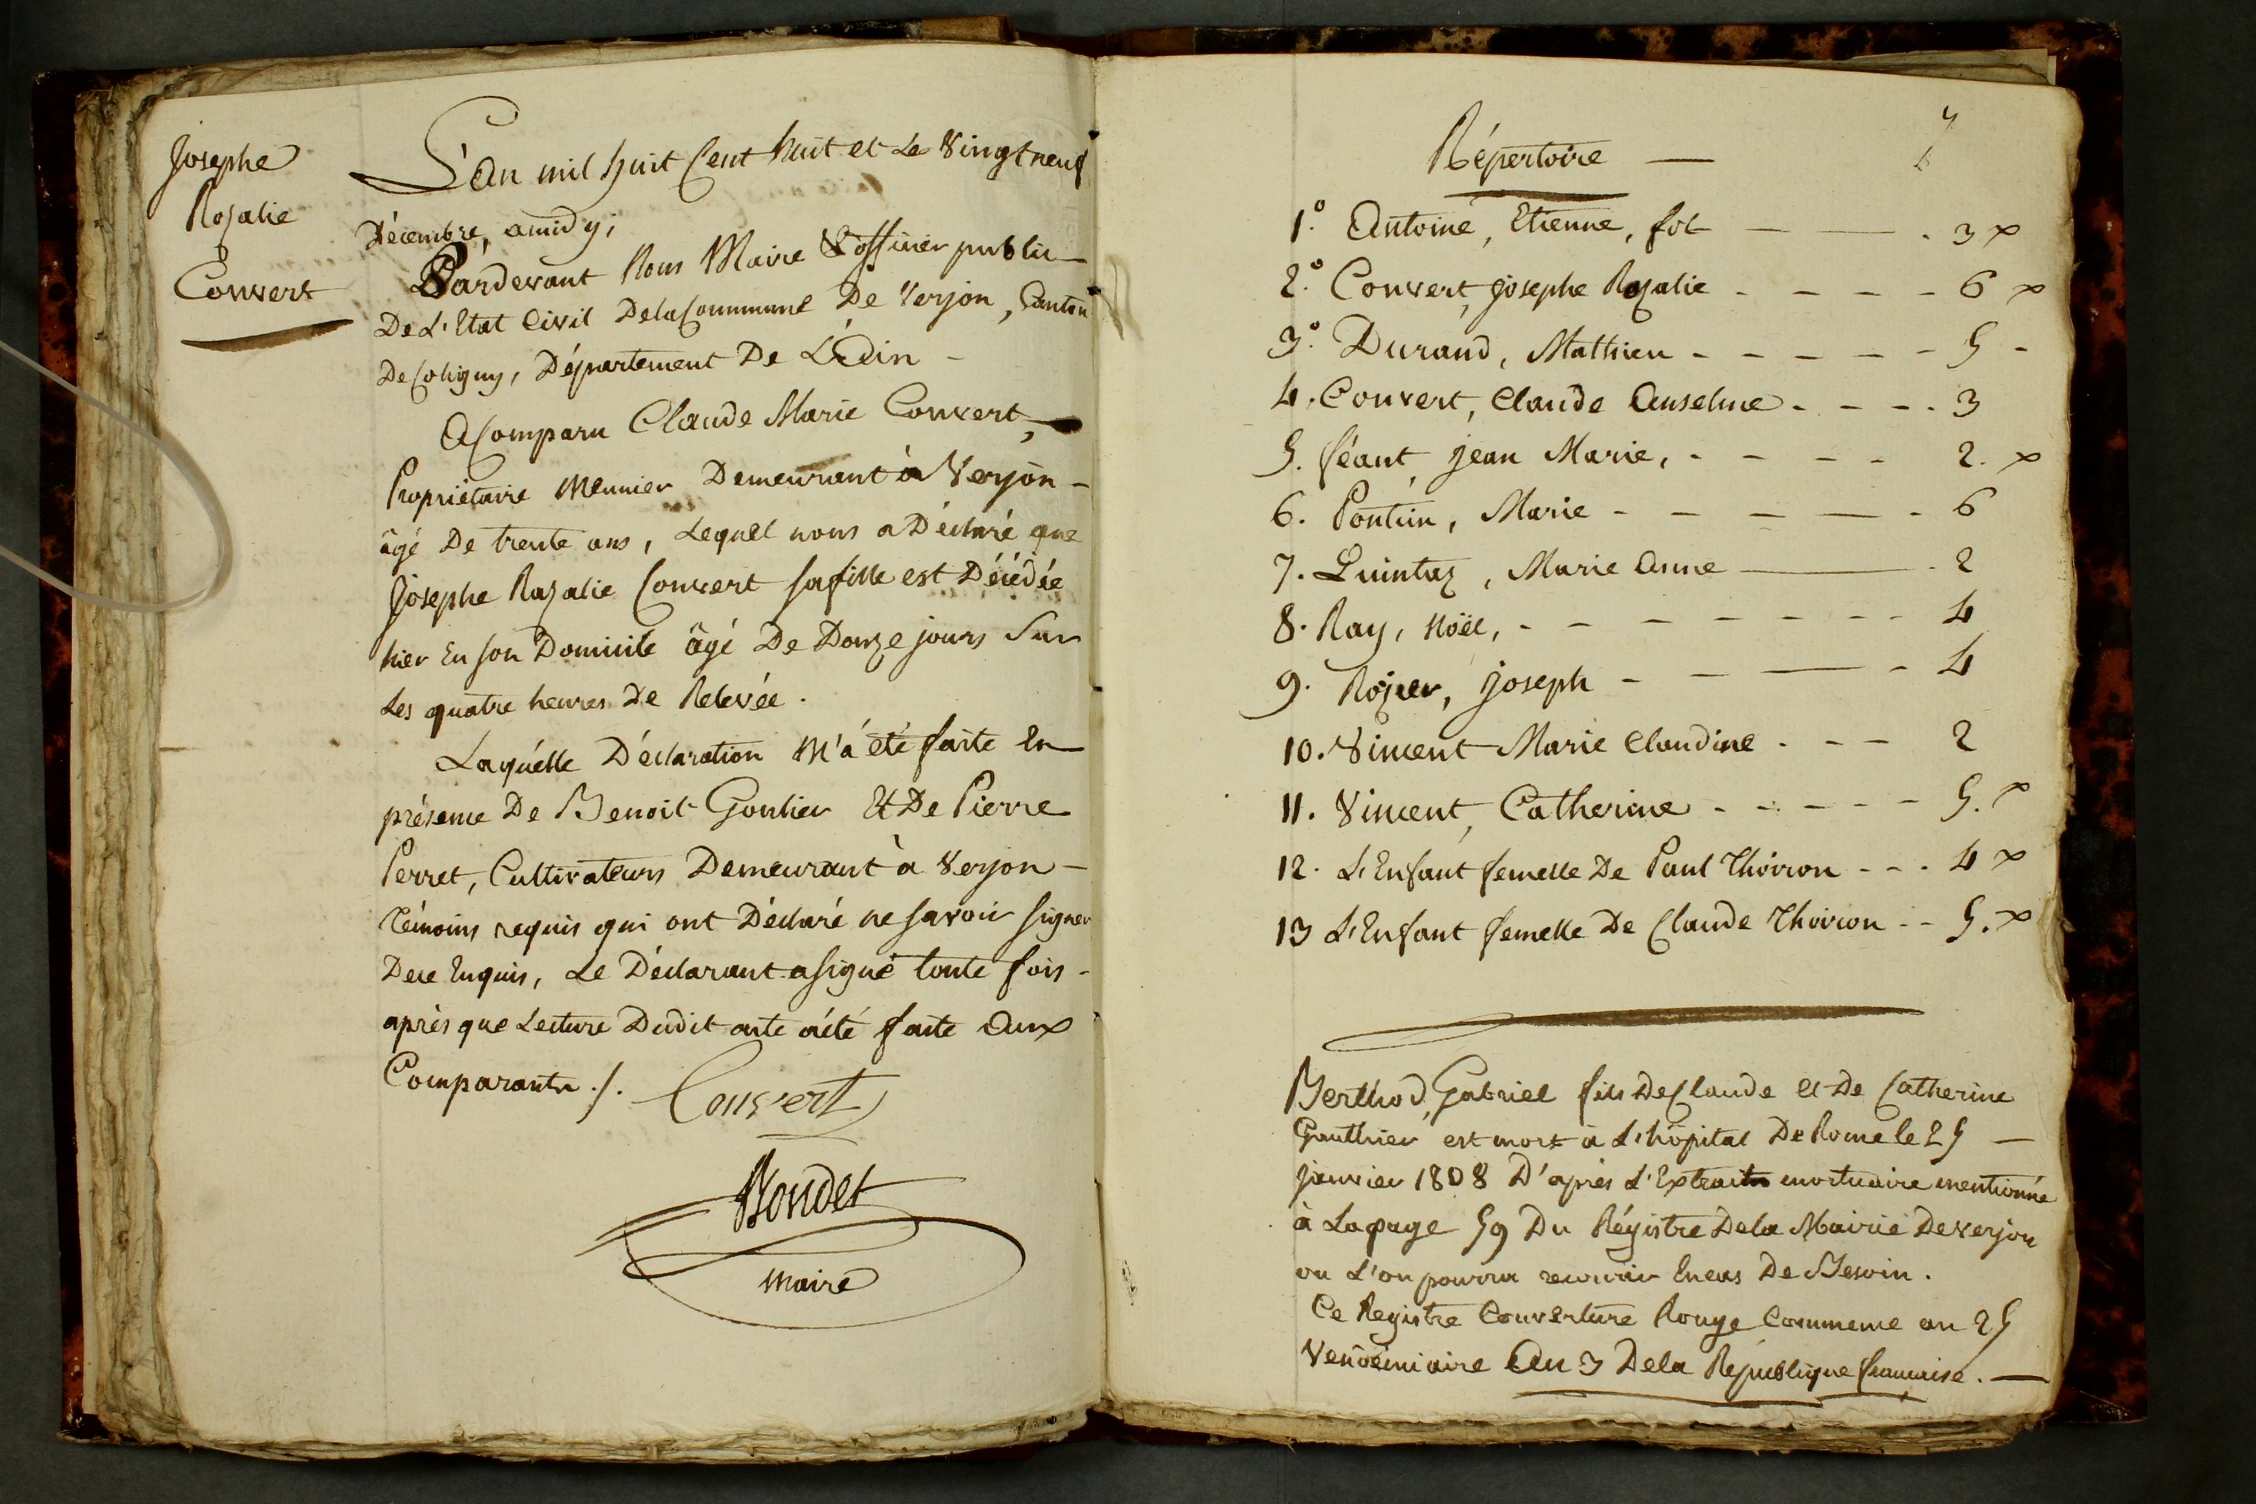 Josephe
Rozalie
Convert
L'an mil huit Cent huit et Le Vingtneuf
Décembre, a midy;
Pardevant Nous Maire & officier public
De L'Etat Civil De la Commune De Verjon, Canton
De Coligny, Département De L'Ain -
A Comparu Claude Marie Convert,
Propriétaire Meunier Demeurant à Verjon -
âgé De trente ans, Lequel nous a Déclaré que
Josephe Rozalie Convert sa fille est Décédée
hier En son Domicile âgé De Douze jours Sur
Les quatre heures De Relevée.
Laquélle Déclaration M'a été faite En
présence De Benoit Gontier Et De Pierre
Perret, Cultivateurs Demeurant à Verjon -
Témoins requis qui ont Déclaré ne savoir signer
De ce Enquis, Le Déclarant a signé toute fois -
après que Lecture Dudit acte a été faite Aux
Comparants ./.
Convert
Bondet
Maire
Répertoire —
1.° Antoine, Etienne, fol — — . 3 x
2.° Convert, Josephe Rozalie - - - - 6 x
3.° Durand, Mathieu - - - - - 5 -
4. Convert, Claude Anselme - - - . 3
5. féant, Jean Marie, - - - - 2. x
6. Pontin, Marie - - - — - 6
7. Quintaz, Marie Anne — - 2
8. Ray, Noël, - - - - - - - - 4
9. Rozier, Joseph - - — - 4
10. Vincent Marie Claudine - - - 2
11. Vincent, Catherine - - - - - 5. x
12. L'Enfant femelle De Paul Thoiron - - . 4 x
13 L'Enfant femelle De Claude Thoiron - - 5. x
Berthod, Gabriel fils De Claude et De Catherine
Gauthier est mort à L'hôpital De Rome le 25 —
Janvier 1808 D'après L'Extrait mortuaire mentionnée
à La page 59 Du Régistre De la Mairie De Verjon
ou L'on pourra recourir En cas De Besoin.
Ce Registre Couverture Rouge Commence au 25
Vendémiaire An 3 De la République française. —